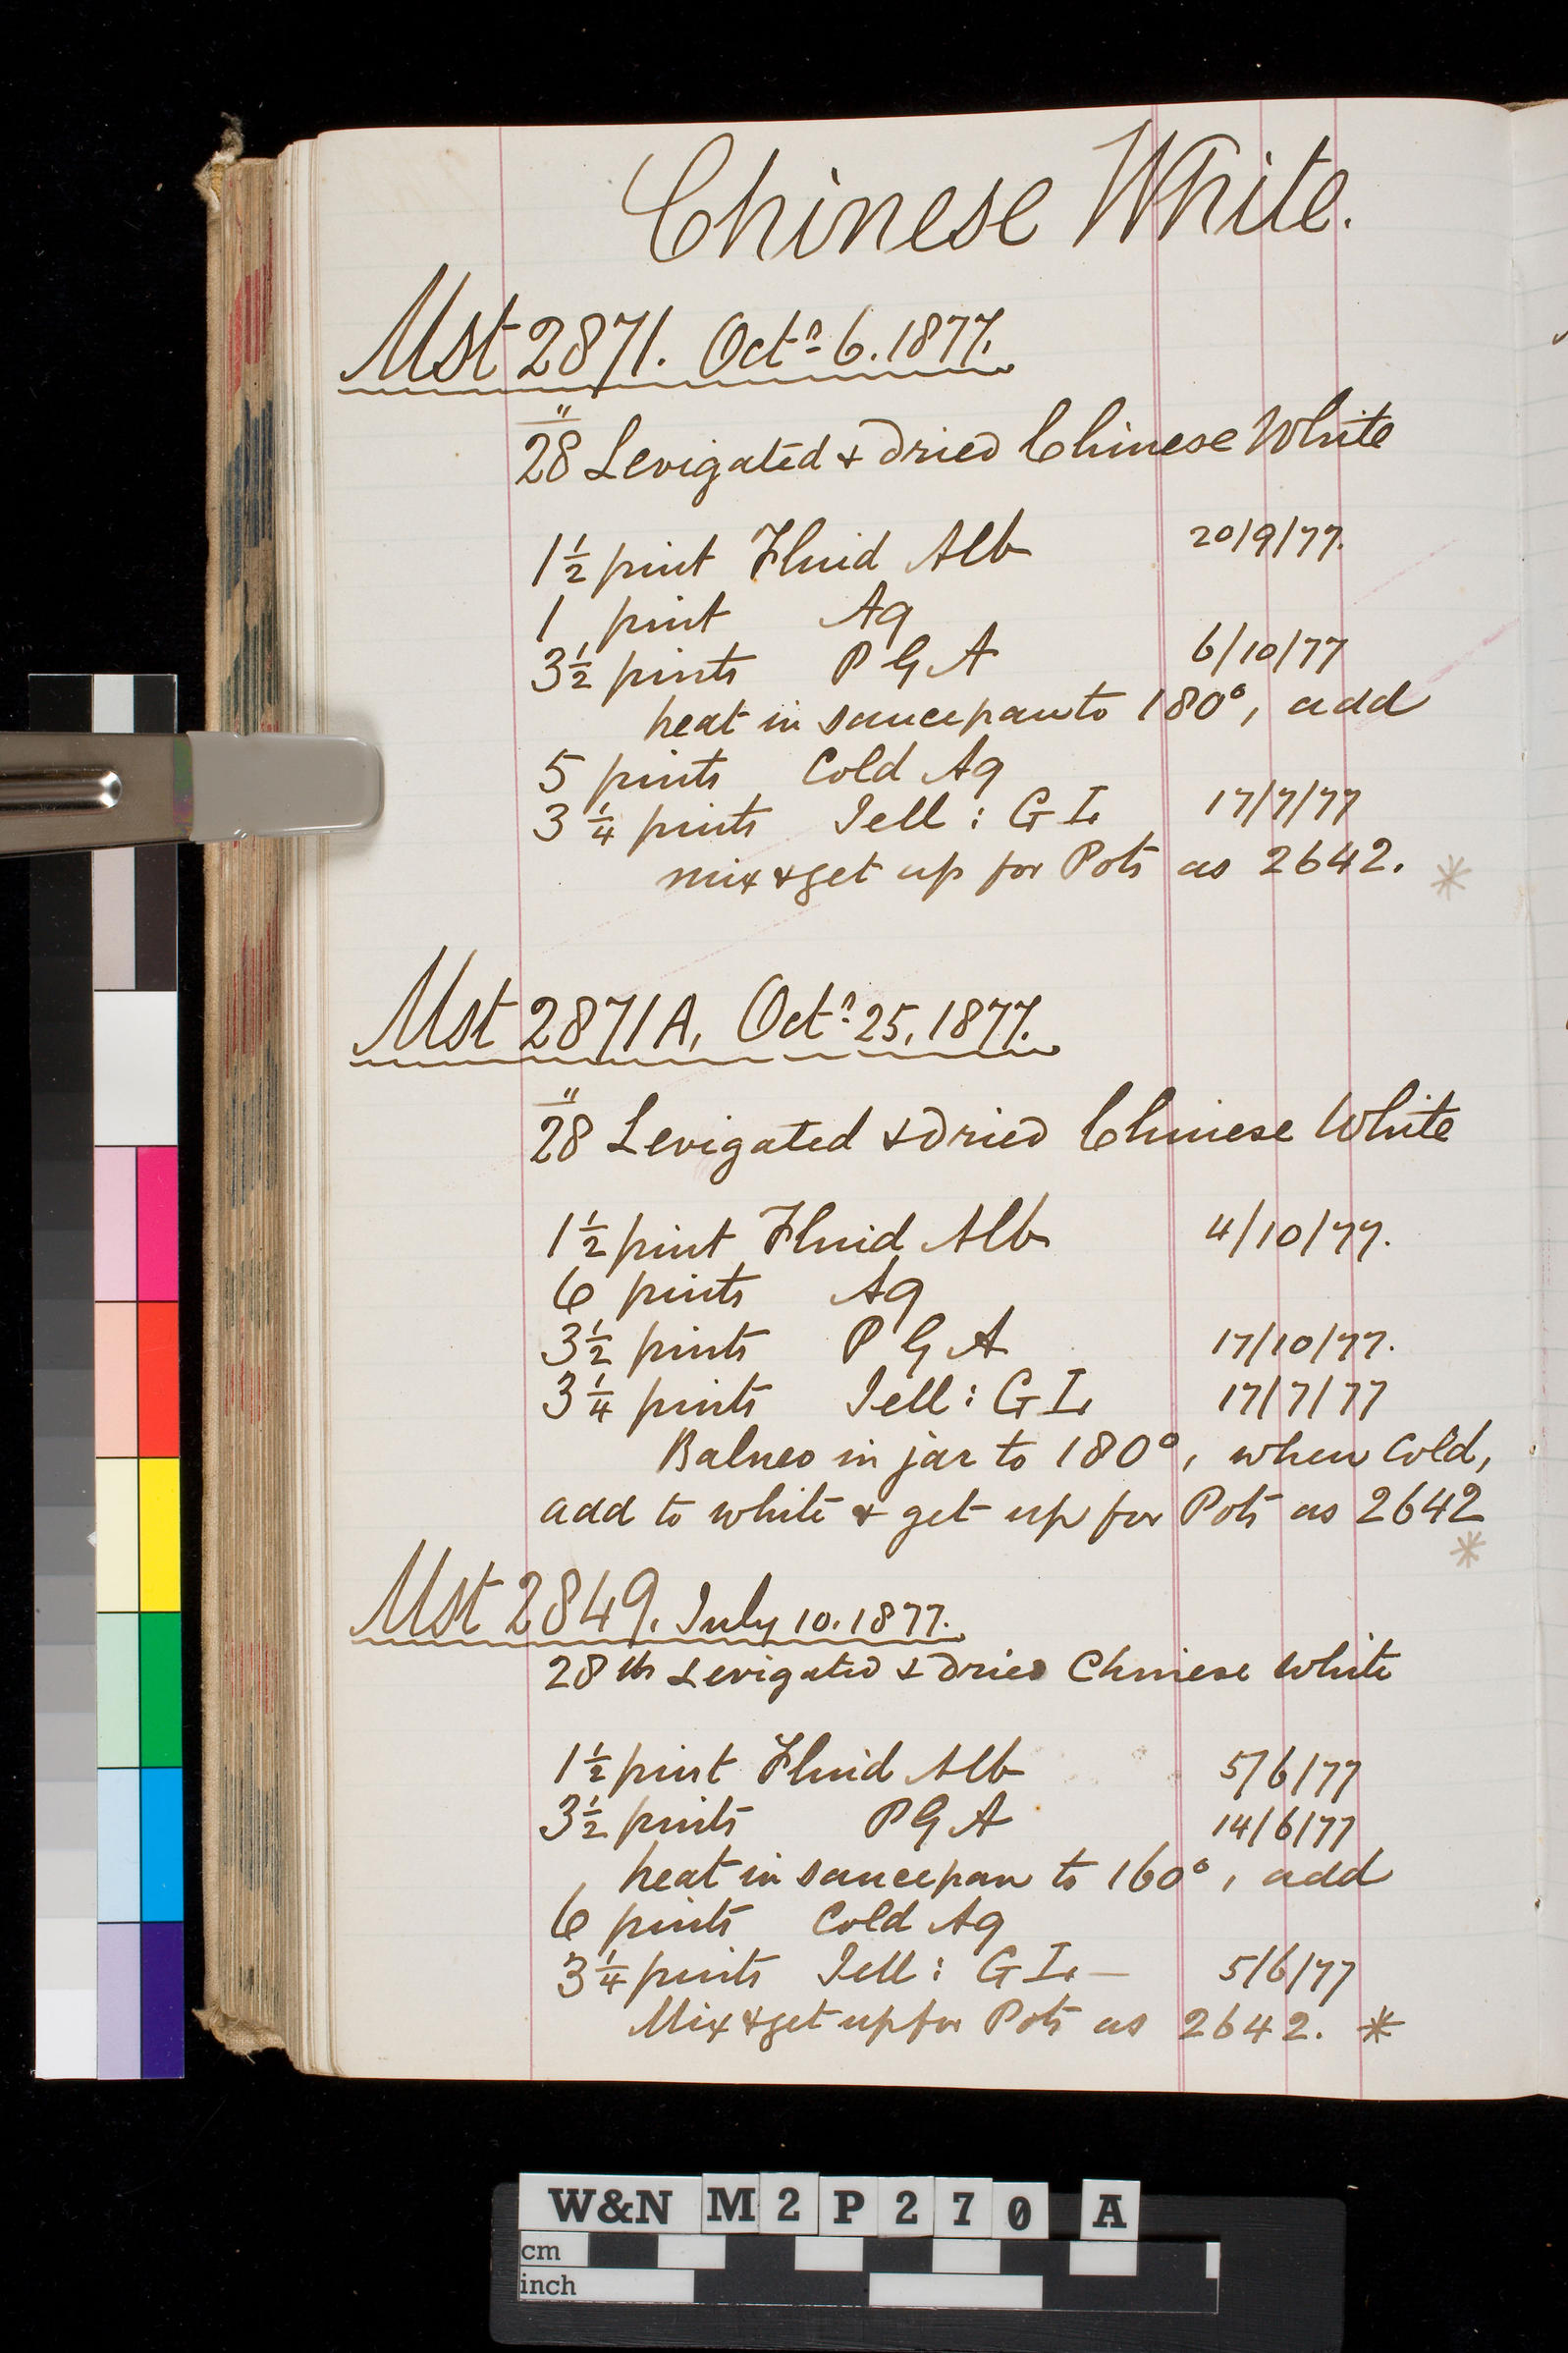 Chinese White.
Mst 2871. Octr 6. 1877.
"
28 Levigated & dried Chinese White
1½ pint Fluid Alb 20/9/77.
1 pint Aq
3½ pints P G A 6/10/77
heat in saucepan to 180°, add
5 pints Cold Aq
3¼ pints Jell: G I. 17/7/77
mix & get up for Pots as 2642. *
Mst 2871A, Octr 25, 1877.
"
28 Levigated & dried Chinese White
1½ pint Fluid Alb 4/10/77.
6 pints Aq
3½ pints P G A 17/10/77.
3¼ pints Jell: G I. 17/7/77
Balneo in jar to 180°, when Cold,
add to white & get up for Pots as 2642
*
Mst 2849. July 10. 1877.
28 lb Levigated & dried Chinese White
1½ pint Fluid Alb 5/6/77
3½ pints P G A 14/6/77
heat in saucepan to 160°, add
6 pints Cold Aq
3¼ pints Jell: G I. — 5/6/77
Mix & get up for Pots as 2642. *
W&N M2P270 A
cm
inch